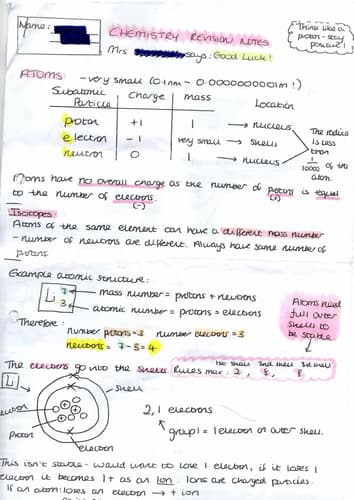 Name:
CHEMISTRY REVISION NOTES
Mrs says: Good Luck!
Think like a
proton - stay
positive!
ATOMS - very small (0.1nm - 0.0000000001m!)
Subatomic Particle | Charge | mass | Location
proton +1 1 → nucleus
electron -1 very small → shells
neutron 0 1 → nucleus
The radius
is less
than
1/10000 of the
atom.
Atoms have no overall charge as the number of protons is equal
(+)
to the number of elecrons.
(-)
Isotopes:
Atoms of the same element can have a different mass number
- number of neutrons are different. Always have same number of
protons
Example atomic structure:
Li 7 → mass number = protons + neutrons
3 → atomic number = protons = electrons
Therefore:
number protons = 3 number elecrons = 3
neutrons = 7-3=4
Atoms need
full outer
shells to
be stable
1st shell 2nd shell 3rd shell
The elecrons go into the shells. Rules max: 2, 8, 8
Li
shell
neutron
proton
electron
2,1 elecrons
group 1 = 1 electron on outer shell.
This isn't stable - would want to lose 1 elecron, if it loses 1
electron it becomes 1+ as an ion. Ions are charged particles.
If an atom: loses an electron → + ion